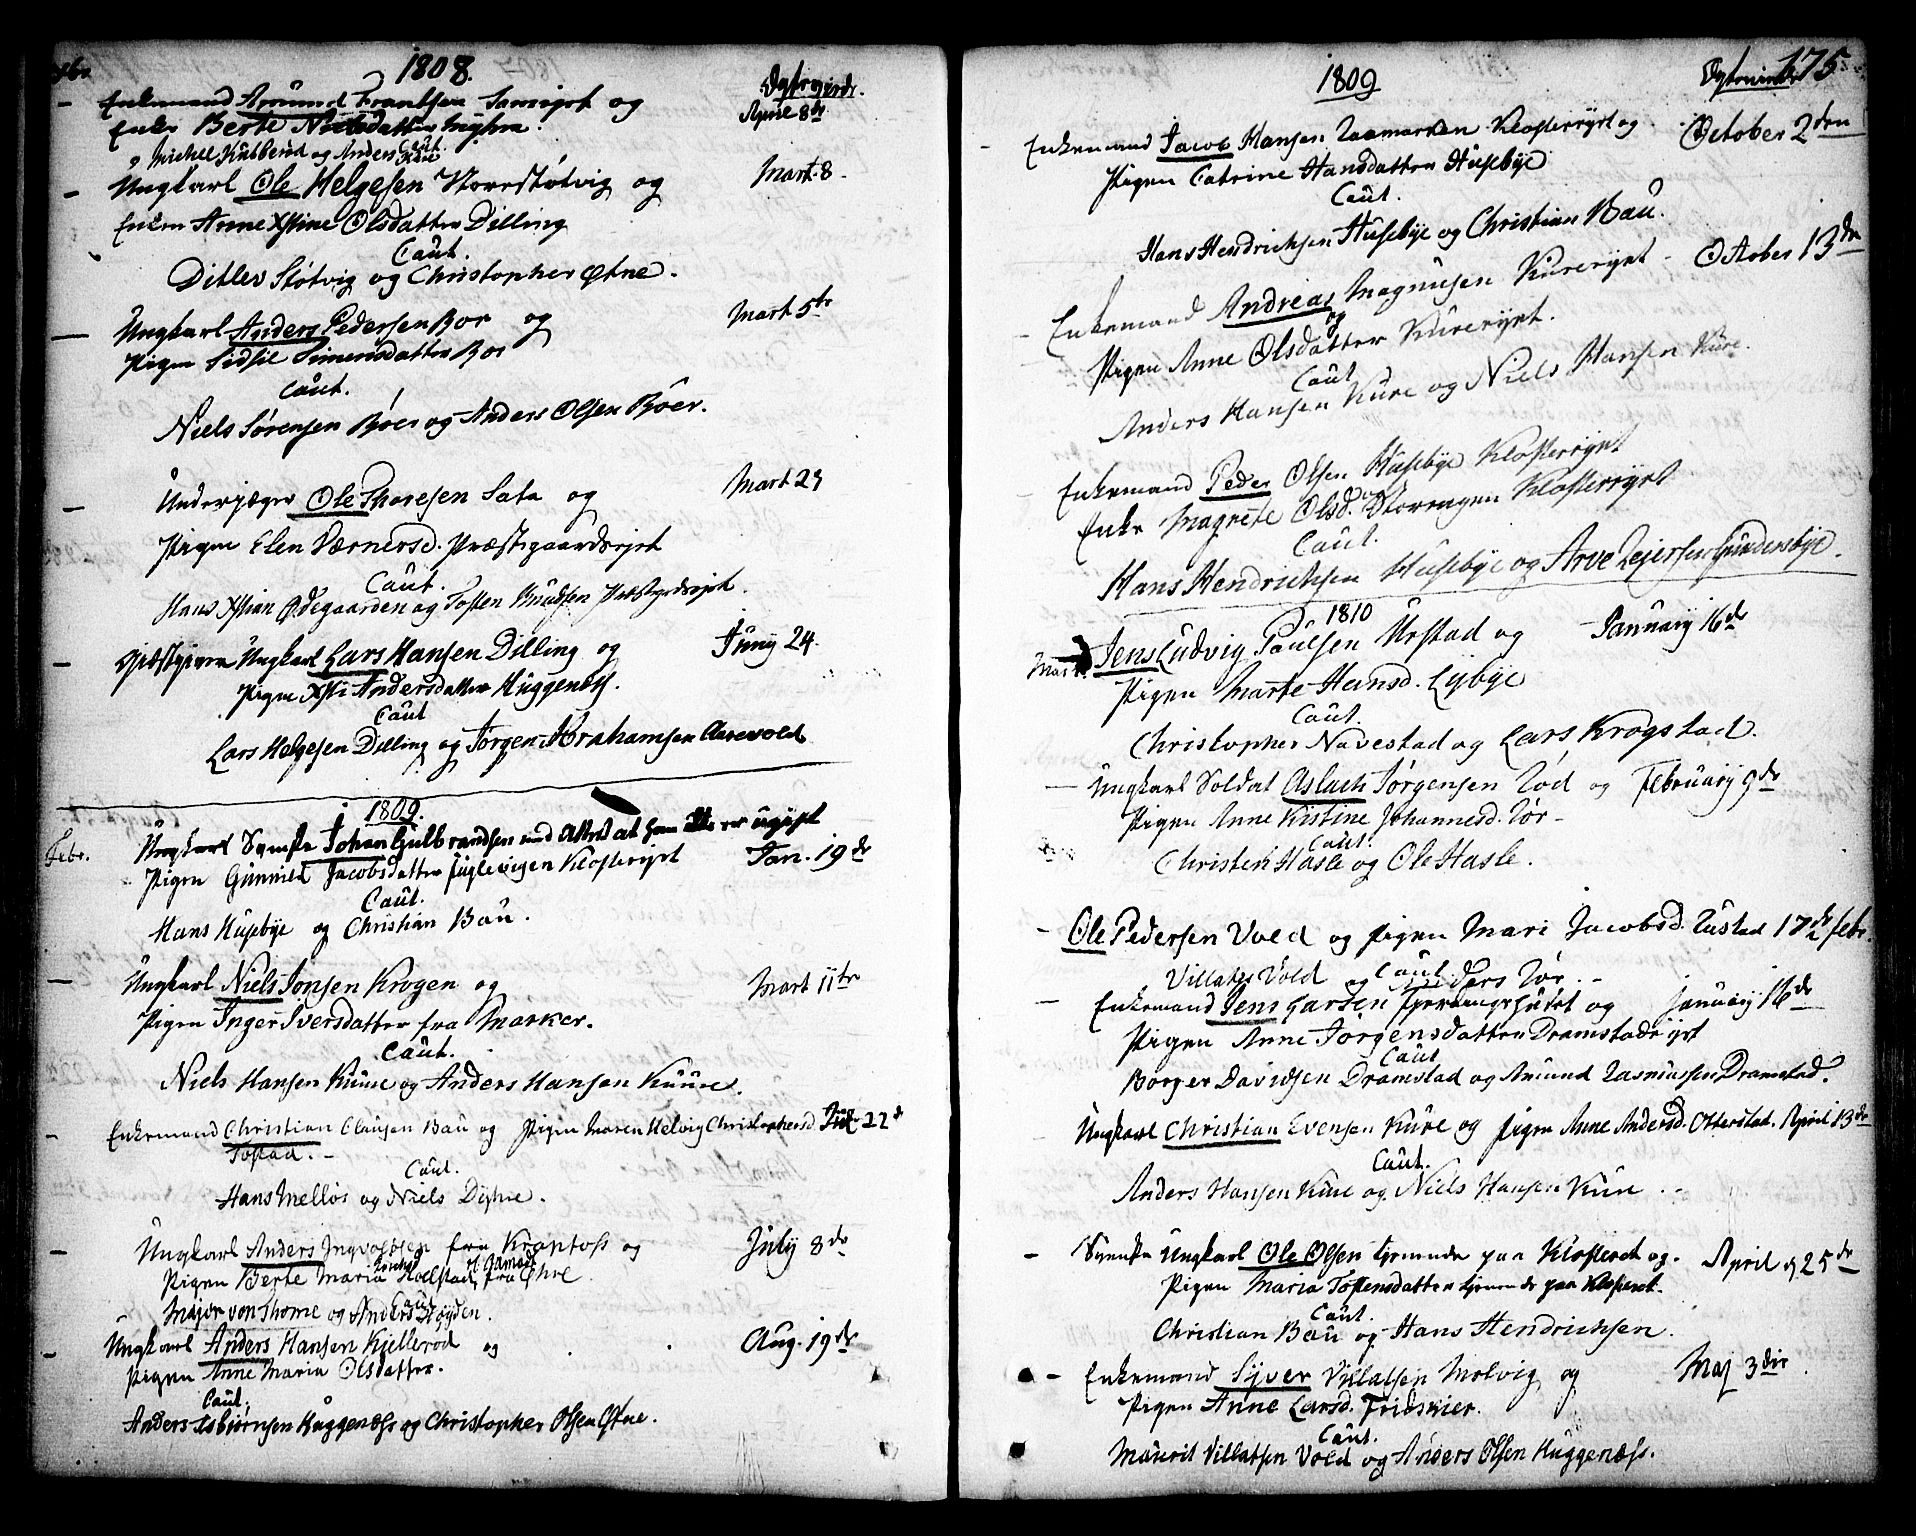 1808.
Enkemand Amund Frantsen og April 8de
Enke Berte Nielsdatter
Michel Kubberød og Anders Caut.
Ungkarl Ole Helgesen Norestøtvig og Mart. 8
Enken Anne Xstine Olsdatter Dilling
Caut.
Ditlev Støtvig og Christopher Østne.
Ungkarl Anders Pedersen Boe og Mart 5te
Pigen Sidsil Simensdatter Boe
Caut.
Niels Sørensen Bøer og Anders Olsen Bøer.
Underjæger Ole Thoresen Sata og Mart 29
Pigen Elen Værnersd. Præstegaardsejet
Caut.
Hans Xstian Ødegaarden og Tosten Knudsen
Ungkarl Lars Hansen Dilling og Junij 24.
Pigen Xsti Andersdatter Huggenæss.
Caut
Lars Helgesen Dilling og Jørgen Abrahamsen Aarevold
1809.
Febr. Ungkarl Svenske Johan Gulbrandsen med Attest at han er ugift
Pigen Gunnild Jacobsdatter Fuglevigen Klosterejet Jan. 19de
Caut.
Hans Husebye og Christian Bau.
Ungkarl Niels Jonsen Krogen og Mart 11te
Pigen Inger Iversdatter fra Marker.
Caut.
Niels Hansen Kuure og Anders Hansen Kuure.
Enkemand Christian Clausen Bau og Pigen Maren Helvig Christophersd. 22de
Tostad.
Caut.
Hans Melløs og Niels Dyhre.
Ungkarl Anders Ingvolsen fra Krapfoss og July 8de
Pigen Berte Maria Hoelstad fra
Major von Thome og Anders Høyden.
Ungkarl Anders Hansen Kjellerød og Aug. 19de
Pigen Anne Maria Olsdatter.
Caut.
Anders Esbiørnsen Huggenæss og Christopher Olsen Østne.
1809 175
Enkemand Jacob Hansen Klosterejet og October 2den
Pigen Catrine Hansdatter Husebye
Caut.
Hans Hendrichsen Husebye og Christian Bau.
Enkemand Andreas Magnusen Kureejet October 13de
og
Pigen Anne Olsdatter Kureejet.
Caut
Anders Hansen Kure og Niels Hansen Kure.
Enkemand Peder Olsen Husebye Klosterejet
og
Enke Magrete Olsd. Storengen Klosterejet
Caut.
Hans Hendrichsen Husebye og Arve Lejersen Gundersbye.
1810
Jens Ludvig Paulsen Urstad og January 16de
Pigen Marte Hansd. Lybye
Caut.
Christopher Navestad og Lars Krogstad.
Ungkarl Soldat Aslach Jørgensen Rød og February 9de
Pigen Anne Kistine Johannesd. Rør
Caut.
Christen Hasle og Ole Hasle.
Ole Pedersen Vold og Pigen Mari Jacobsd. Rustad 17de febr.
Caut
Villates Vold og Iver Rør
Enkemand Jens Larsen og January 16de
Pigen Anne Jørgensdatter Dramstadejet
Caut
Borger Davidsen Dramstad og Amund Rasmussen Dramstad.
Ungkarl Christian Evensen Kure og Pigen Anne Andersd. Otterstad. April 13de
Caut.
Anders Hansen Kure og Niels Hansen Kure
Svenske Ungkarl Ole Olsen tjenende paa Klosteret og April 25de
Pigen Maria Tostensdatter tjenende paa Klosteret.
Caut.
Christian Bau og Hans Hendrichsen.
Enkemand Syver Villatsen Molvig og Maj 3die
Pigen Anne Larsd. Fridskier.
Caut.
Maurit Villatsen Vold og Anders Olsen Huggenæss.